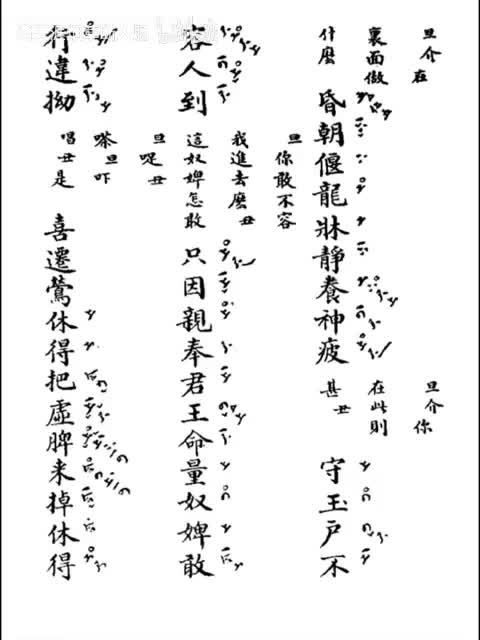 旦介在
裏面做
什麽
昏朝偃龍牀靜養神疲
旦介你
在此則
甚丑
守玉户不
容人到
旦你敢不容
我進去麽丑
這奴婢怎敢
只因親奉君王命量奴婢敢
行違拗
旦呢丑
嗏旦吓
唱丑是
喜遷鶯休得把虛脾来掉休得